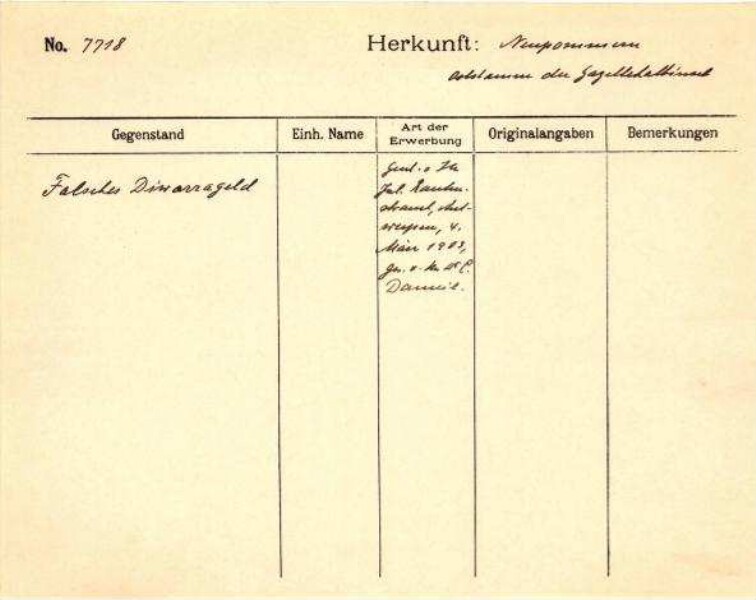 No. 7718
Herkunft: Neupommern
der Gazellehalbinsel
Gegenstand
Einh. Name
Art der
Erwerbung
Originalangaben
Bemerkungen
Falsches Diwarrageld
Jul. Rauten-
strauch, Ant-
werpen, 4.
März 1903,
Damile.